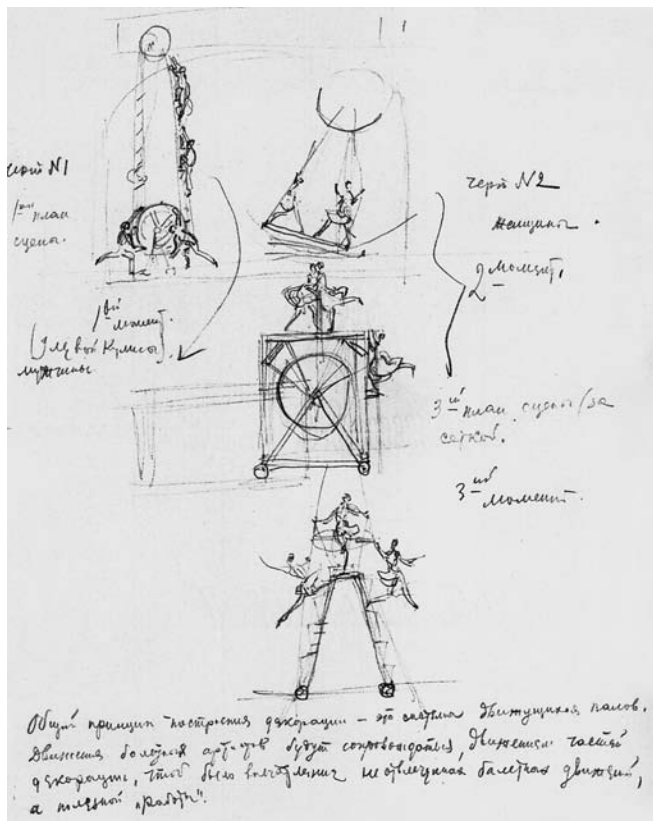 черт N1
1ый план
сцены.
1ый
момент.
(у левой кулисы).
мужчины
черт N2
женщины.
2й момент.
3ий план сцены (за
сеткой.
3ий
момент.
Общий принцип построения декорации – это система движущихся валов.
Движения балетных артистов будут сопровождаться движением частей
декорации, чтоб было впечатление не отвлеченных балетных движений,
а полезной "работы".